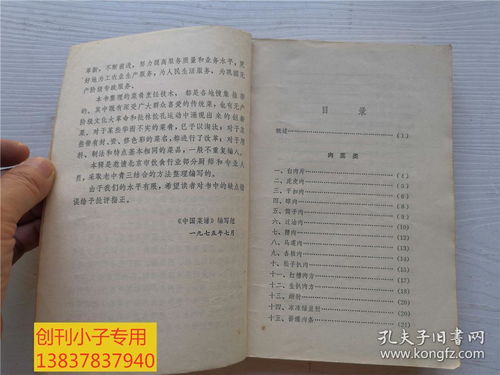 革新，不断前进，努力提高服务质量和业务水平，更
好地为工农业生产服务，为人民生活服务，为巩固无
产阶级专政服务。
本书整理的菜肴烹饪技术，都是各地搜集推荐
的。其中既有深受广大群众喜爱的传统菜，也有无产
阶级文化大革命和批林批孔运动中涌现出来的创新
菜。对于某些华而不实的菜肴，已予以淘汰；对于某
些带有封、资、修色彩的菜名，都进行了改革；对于用
料、制法和特点基本相同的菜品，一般不重复编入。
本辑是邀请北京市饮食行业部分厨师和专业人
员，采取老中青三结合的方法整理编写的。
由于我们的水平有限，希望读者对书中的缺点错
误给予批评指正。
《中国菜谱》编写组
一九七五年七月
目录
概述 (1)
肉菜类
一、白肉片 (4)
二、虎皮肉 (5)
三、干扣肉
四、
五、筒子肉
六、过油肉
七、樱肉
八、马莲肉
九、
十、松子扒肉
十一、扛糟肉方 (15)
十二、生扒肉方 (17)
十三、 (18)
十四、冰冻绿豆肘 (20)
十五、酱爆肉条 (21)
创刊小子专用
13837837940
孔夫子旧书网
www.kongfz.com